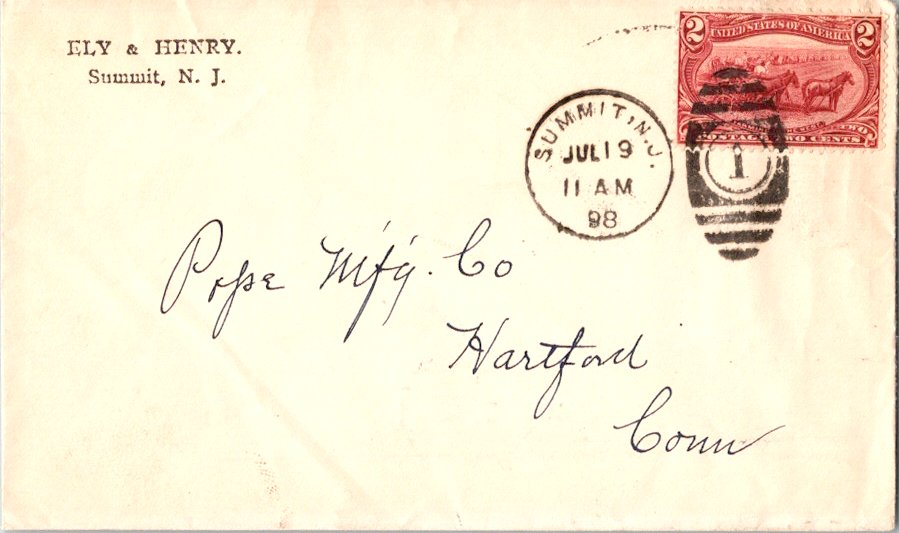 ELY & HENRY.
Summit, N. J.
2 UNITED STATES OF AMERICA 2
POSTAGE TWO CENTS
SUMMIT, N.J.
JUL 19
11 AM
98
1
Pope M'f'g. Co
Hartford
Conn